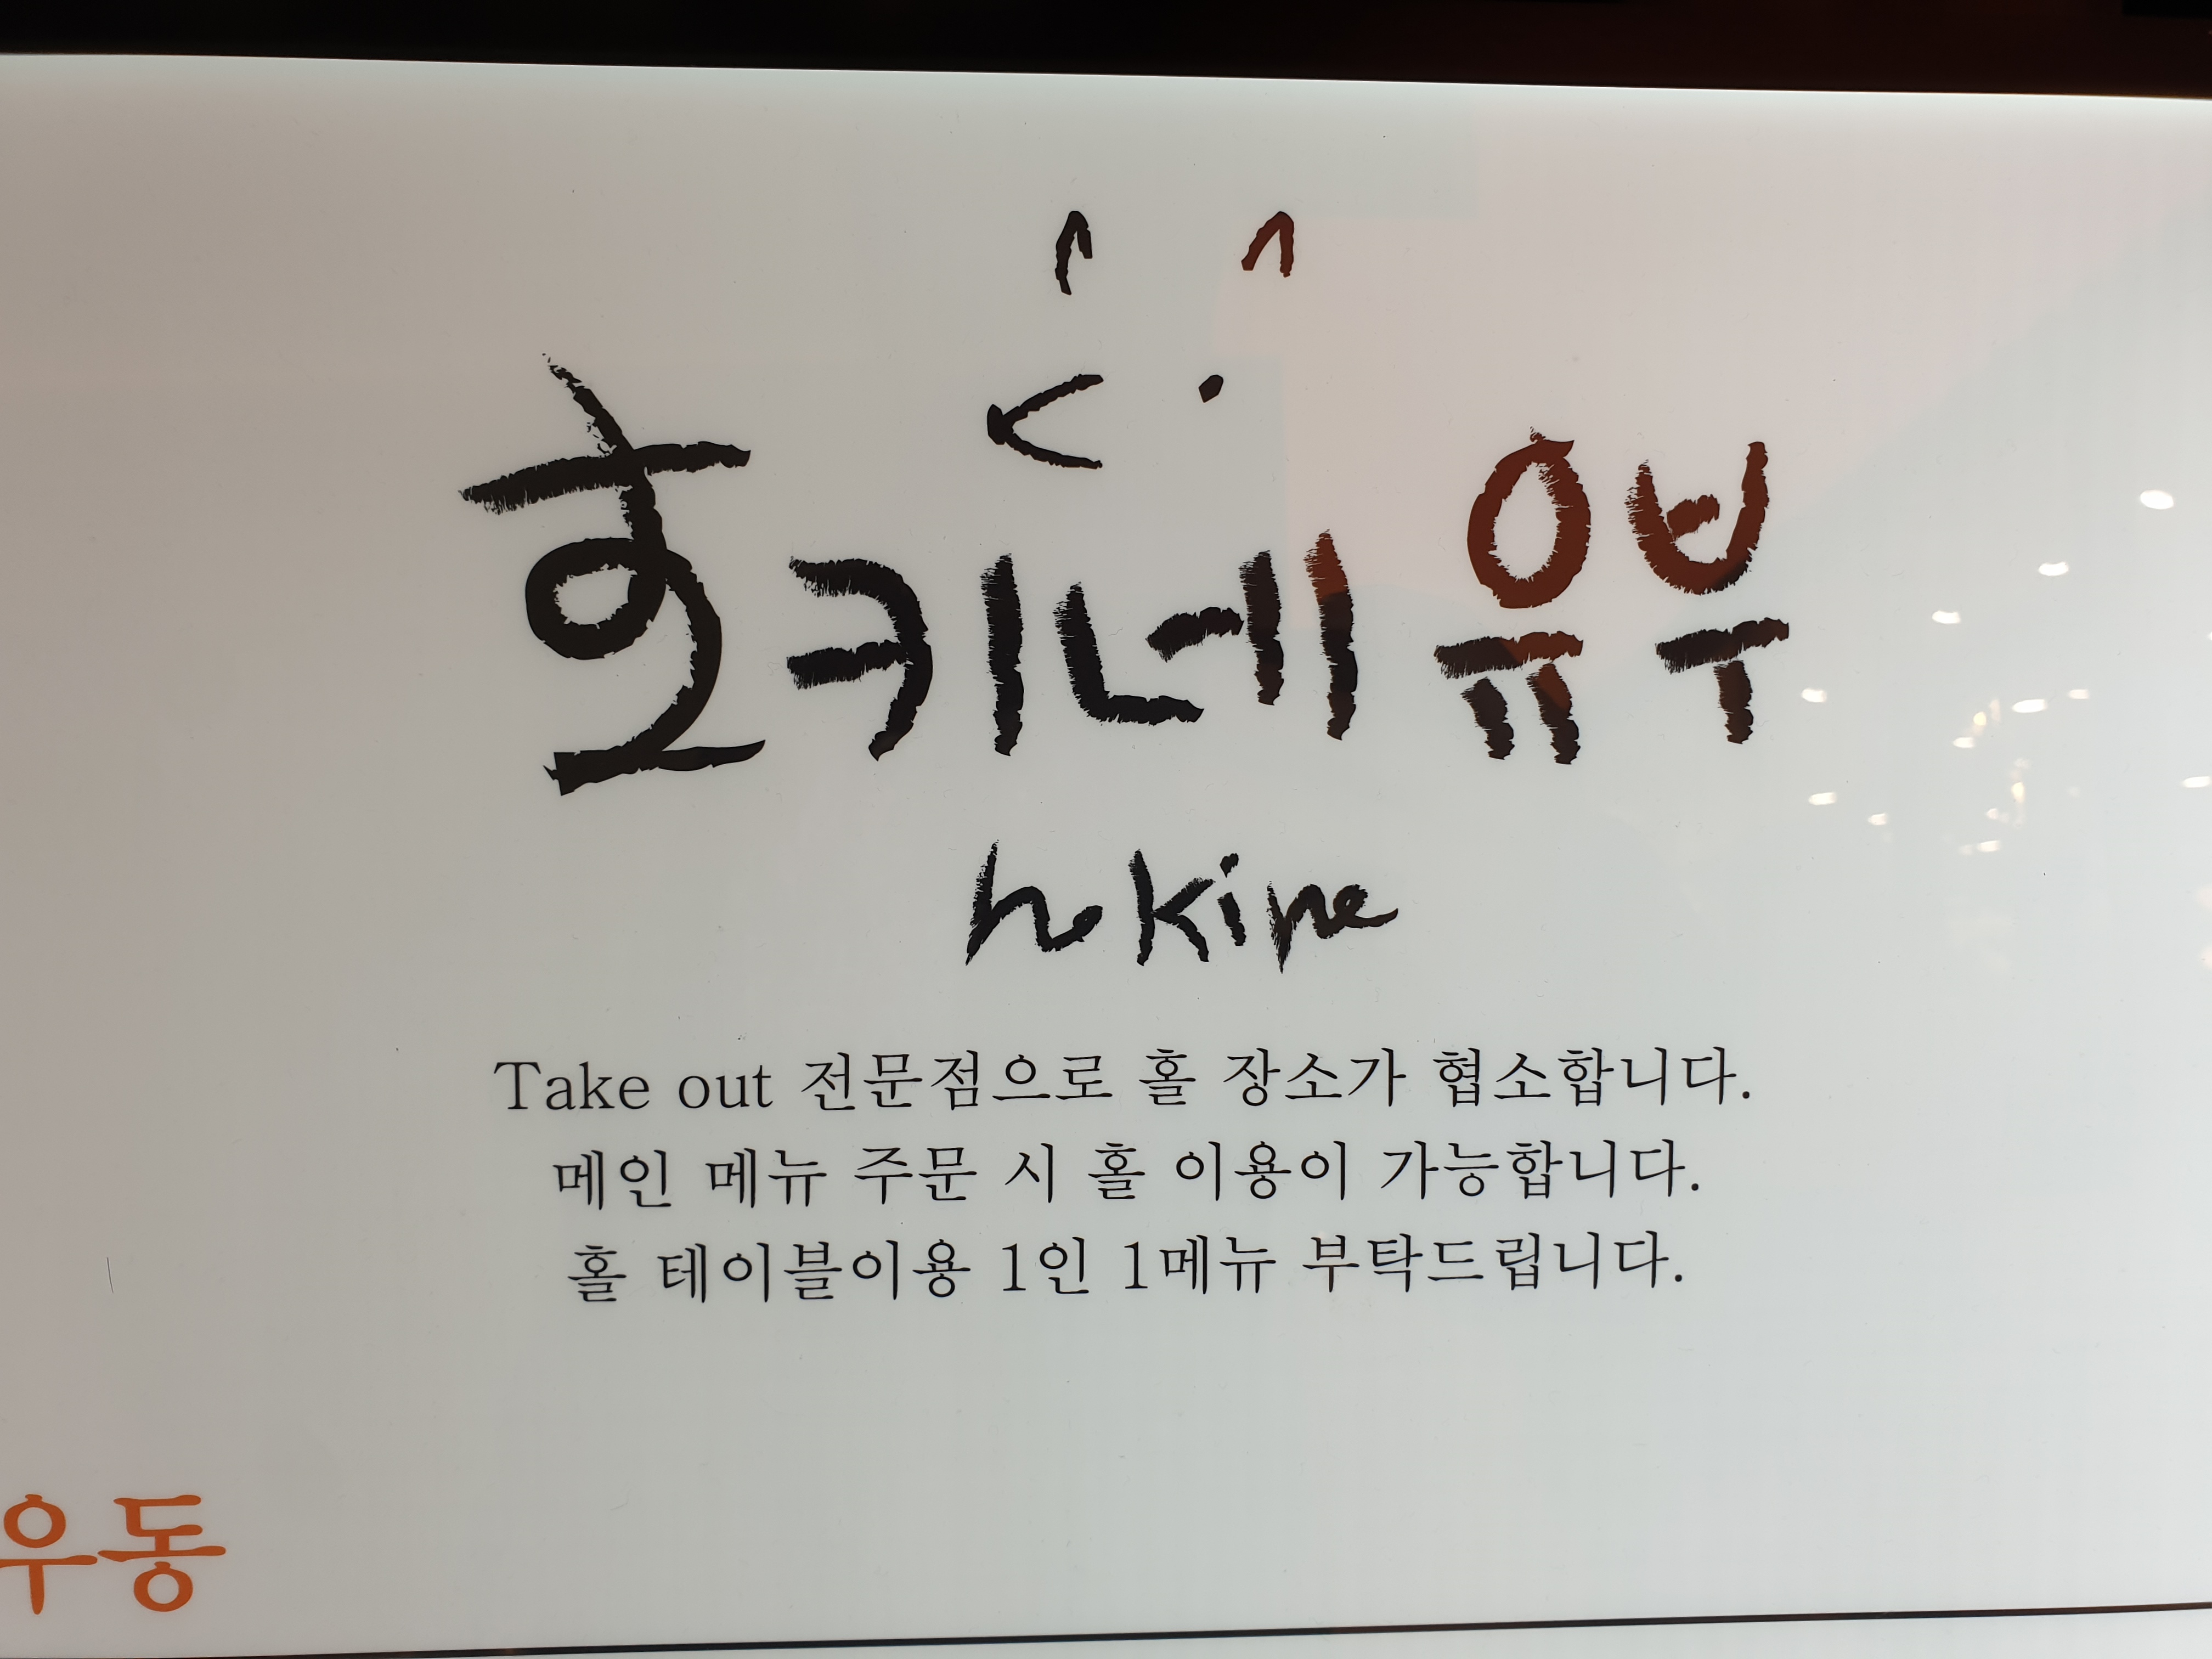 호키네 유부
hokine
Take out 전문점으로 홀 장소가 협소합니다.
메인 메뉴 주문 시 홀 이용이 가능합니다.
홀 테이블이용 1인 1메뉴 부탁드립니다.
우동